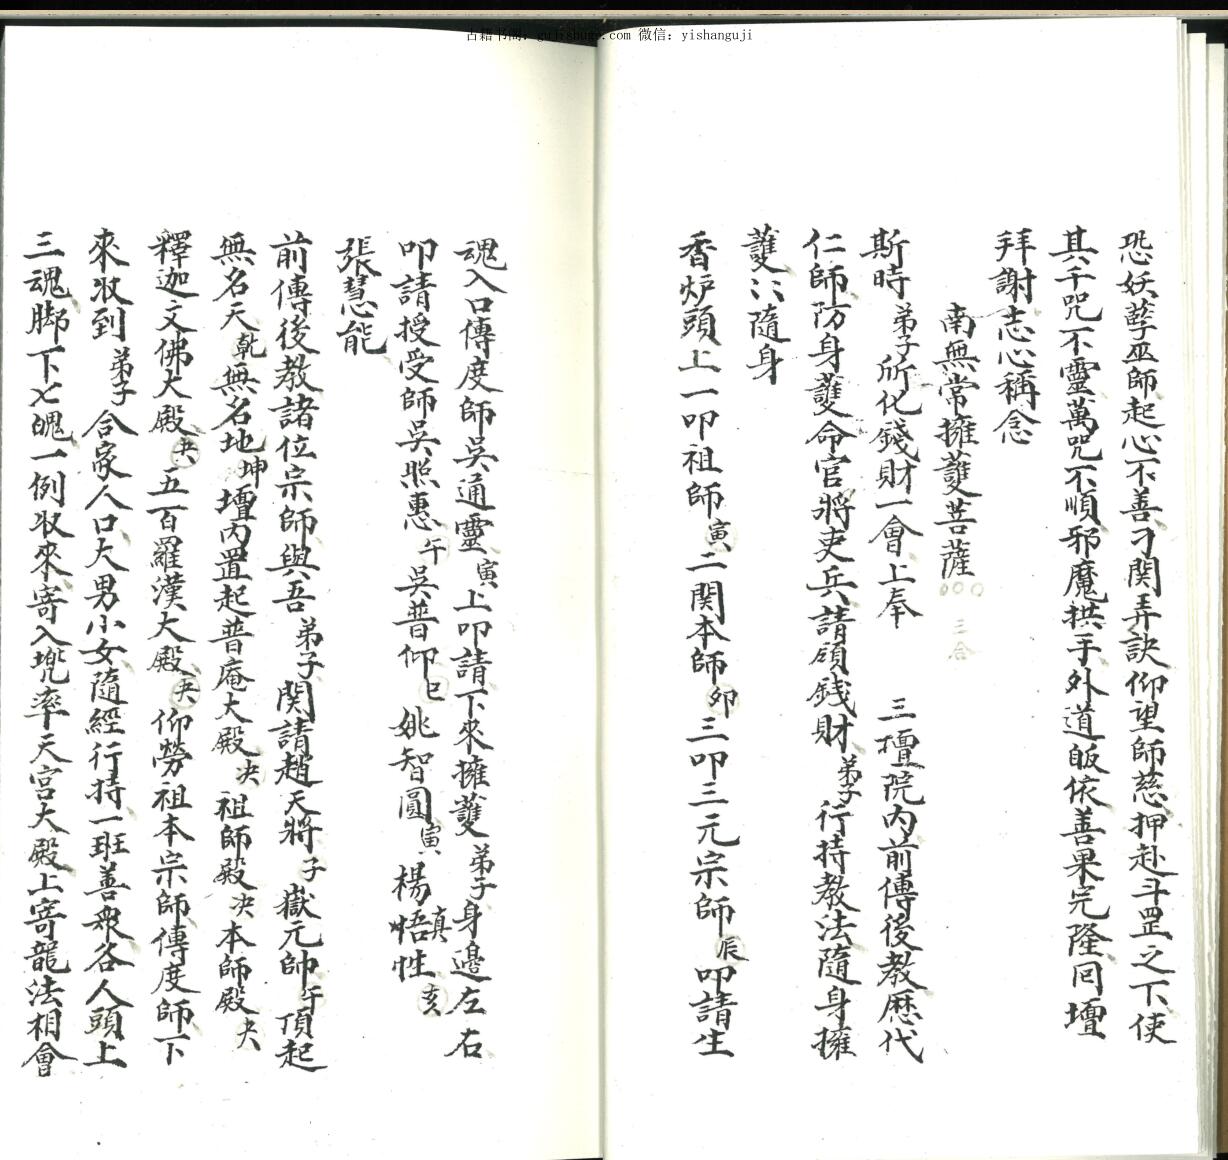 古籍书阁：gujishuge.com 微信：yishanguji
恐妖孽巫師起心不善刁関弄訣仰望師慈押赴斗罡之下使
其千咒不靈萬咒不順邪魔拱手外道皈依善果完隆同壇
拜謝志心稱念
南無常擁護菩薩 三合
斯時弟子所化錢財一會上奉 三壇院内前傳後教歷代
仁師防身護命官將吏兵請領錢財弟子行持教法隨身擁
護〻隨身
香炉頭上一叩祖師寅二関本師卯三叩三元宗師辰叩請生
魂入口傳度師吳通靈寅上叩請下來擁護弟子身邊左右
叩請授受師吳照惠午吳普仰巳姚智圓寅楊悟真性亥
張慧能
前傳後教諸位宗師與吾弟子関請趙天將子嶽元帥午頂起
無名天乾無名地坤壇内置起普庵大殿决祖師殿决本師殿夬
釋迦文佛大殿夬五百羅漢大殿夬仰勞祖本宗師傳度師下
來收到弟子合家人口大男小女隨經行持一班善衆各人頭上
三魂脚下七魄一例收來寄入兜率天宮大殿上寄龍法相會